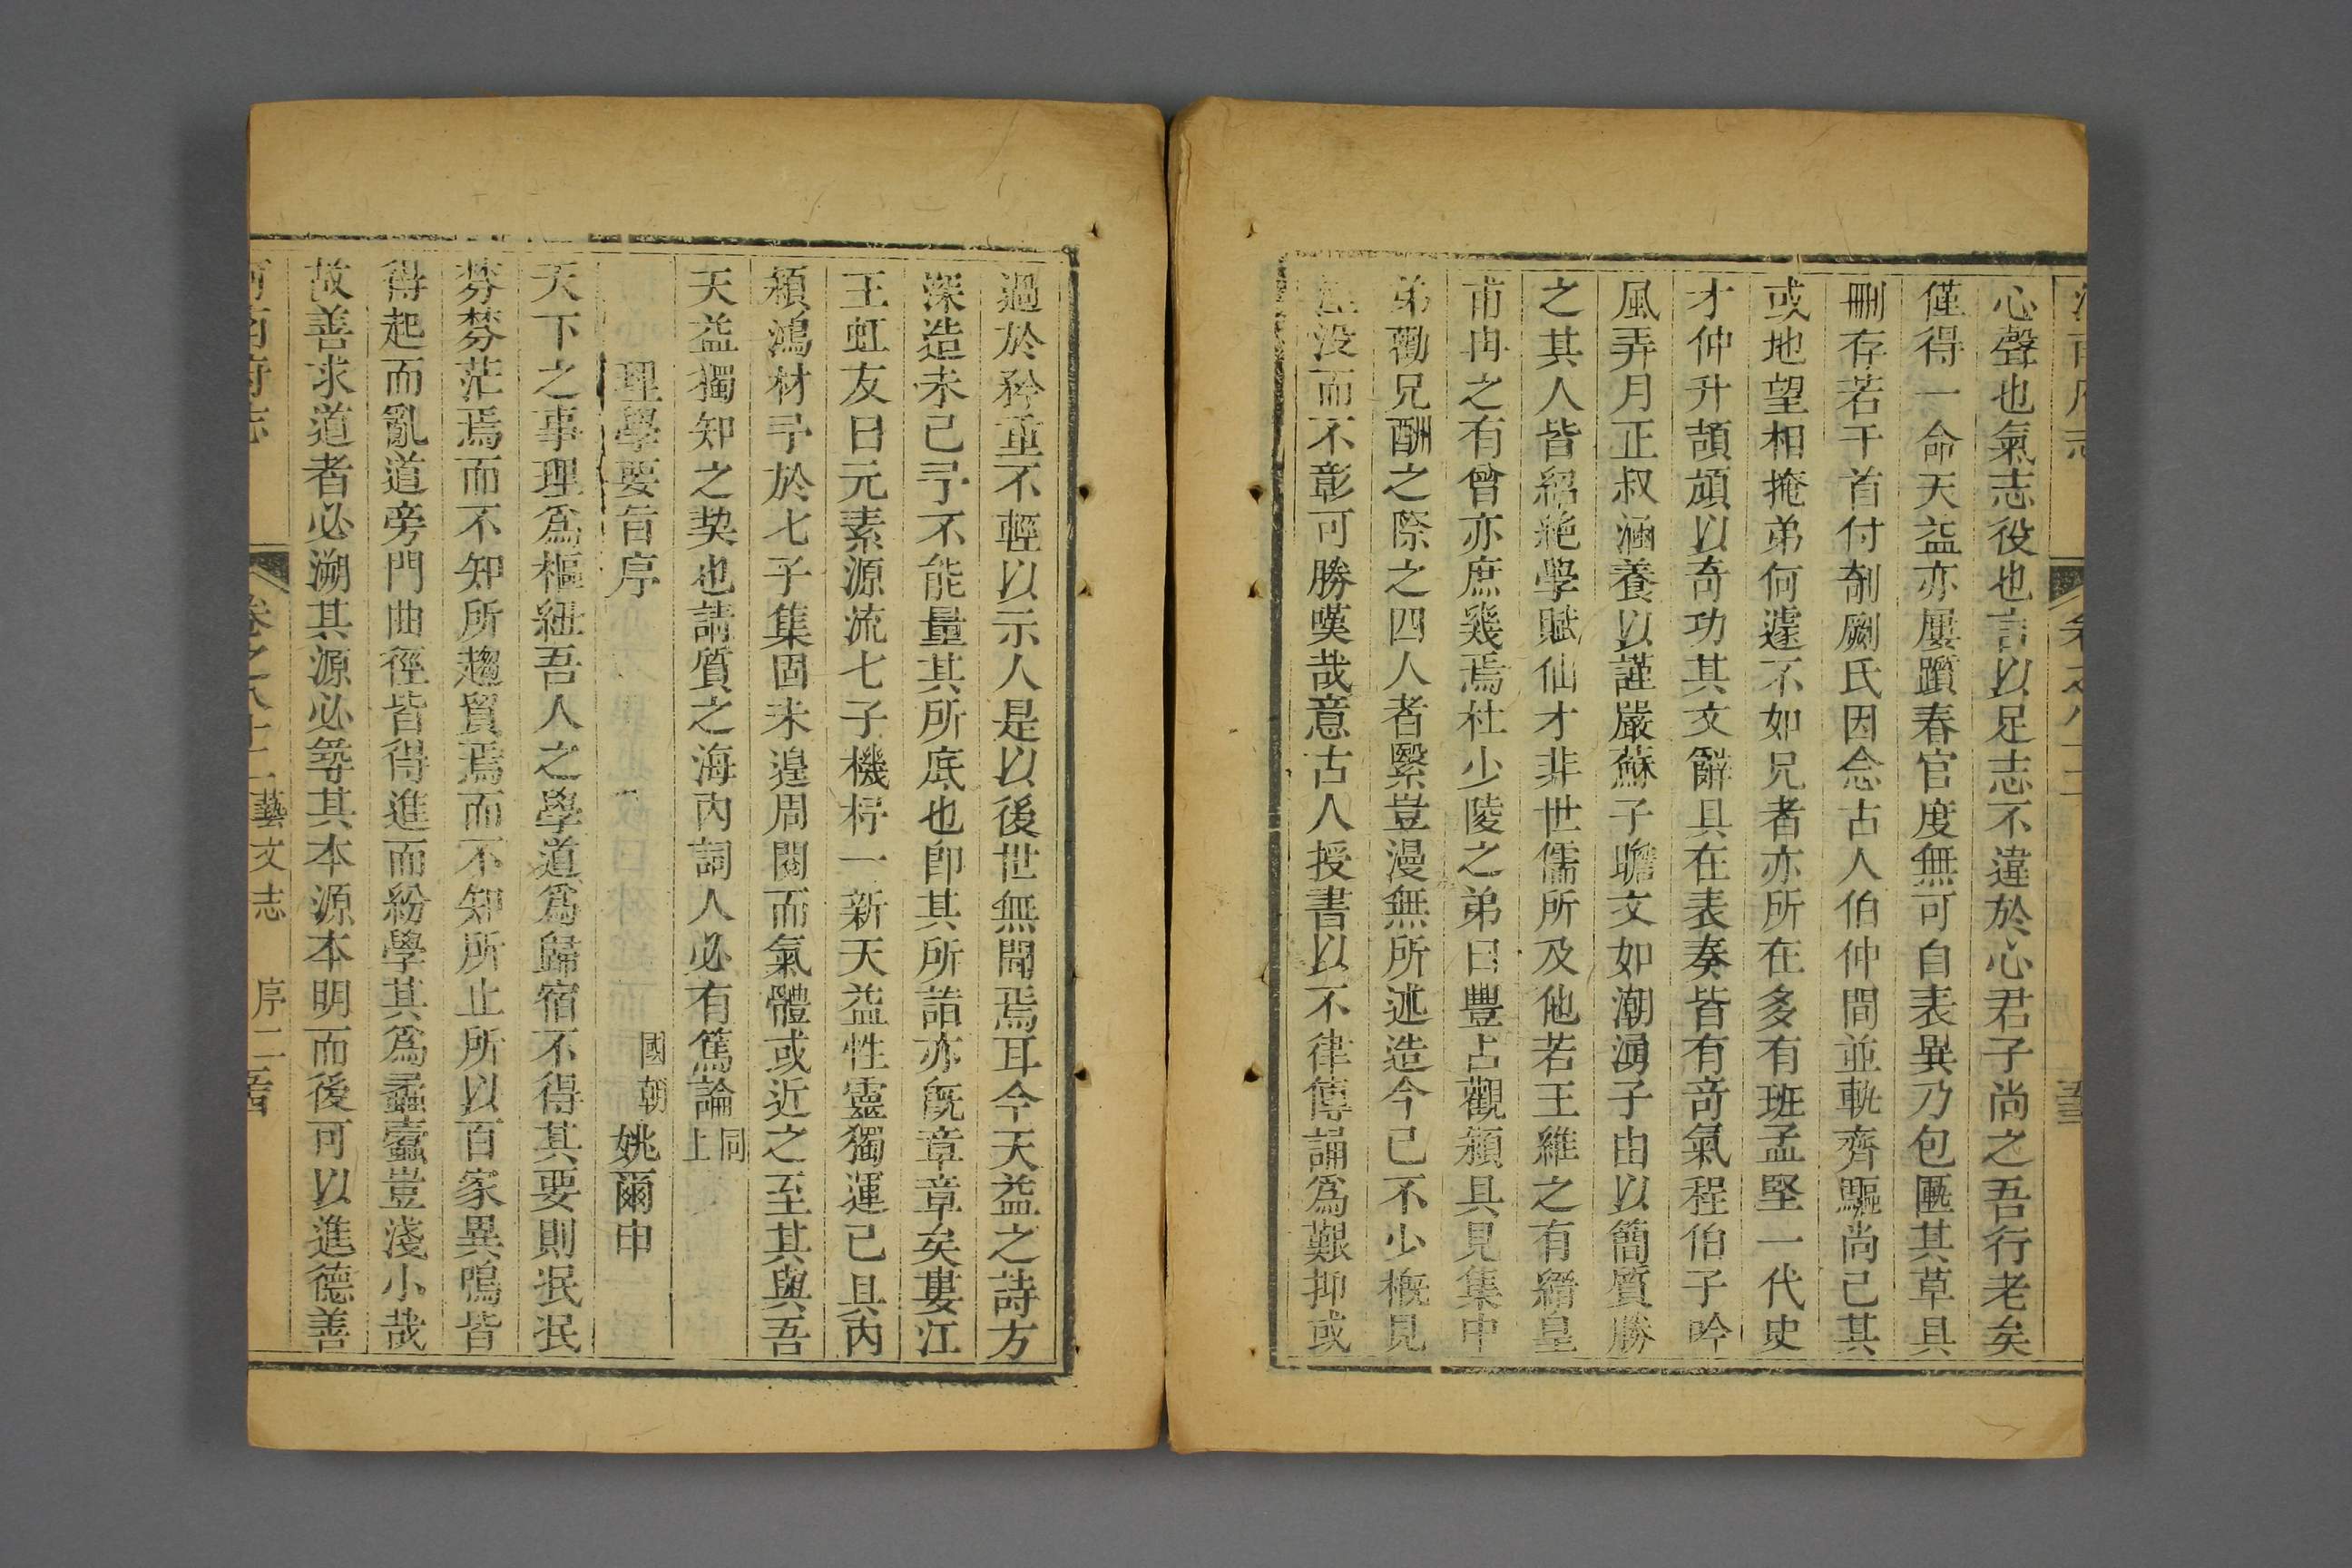 河南府志 卷之八十二
心聲也氣志役也言以足志不違於心君子尚之吾行老矣
僅得一命天益亦屢躓春官度無可自表異乃包匭其草具
刪存若干首付剞劂氏因念古人伯仲間並軌齊驅尚已其
或地望相掩弟何遽不如兄者亦所在多有班孟堅一代史
才仲升頡頏以奇功其文辭具在表奏皆有奇氣程伯子吟
風弄月正叔涵養以謹嚴蘇子瞻文如潮湧子由以簡質勝
之其人皆紹絶學賦仙才非世儒所及他若王維之有縉皇
甫冉之有曾亦庶幾焉杜少陵之弟曰豐占觀穎具見集中
弟勸兄酬之際之四人者繄豈漫無所述造今已不少槪見
没而不彰可勝嘆哉意古人授書以不律傳誦爲艱抑或
過於矜重不輕以示人是以後世無聞焉耳今天益之詩方
深造未已予不能量其所底也卽其所詣亦旣章章矣婁江
王虹友曰元素源流七子機杼一新天益性靈獨運已具内
頻鴻材予於七子集固未遑周閱而氣體或近之至其與吾
天益獨知之契也請質之海内詞人必有篤論同上
理學要旨序 國朝姚爾申
天下之事理爲樞紐吾人之學道爲歸宿不得其要則泯泯
棼棼茫焉而不知所趨貿焉而不知所止所以百家異鳴皆
得起而亂道旁門曲徑皆得進而紛學其爲蟊蠹豈淺小哉
故善求道者必溯其源必尋其本源本明而後可以進德善
河南府志 卷之八十二藝文志 序二